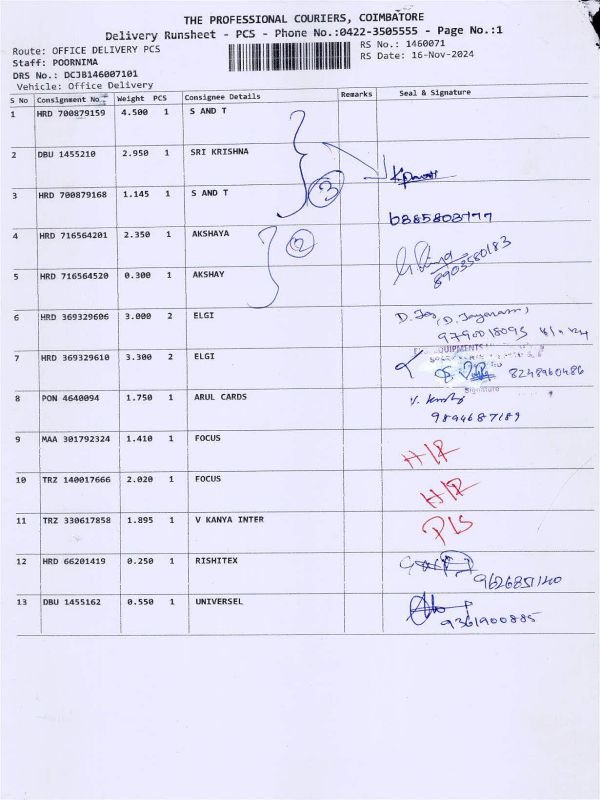 THE PROFESSIONAL COURIERS, COIMBATORE
Delivery Runsheet - PCS - Phone No.:0422-3505555 - Page No.:1
Route: OFFICE DELIVERY PCS
RS No.: 1460071
Staff: POORNIMA
RS Date: 16-Nov-2024
DRS No.: DCJB146007101
Vehicle: Office Delivery
S No Consignment No. Weight PCS Consignee Details Remarks Seal & Signature
1 HRD 700879159 4.500 1 S AND T
2 DBU 1455210 2.950 1 SRI KRISHNA
3
3 HRD 700879168 1.145 1 S AND T
6885808777
4 HRD 716564201 2.350 1 AKSHAYA
2
8903580183
5 HRD 716564520 0.300 1 AKSHAY
6 HRD 369329606 3.000 2 ELGI
D. Jay (D. Jayaram)
9790018095
7 HRD 369329610 3.300 2 ELGI
EQUIPMENTS
8248960486
Signature
8 PON 4640094 1.750 1 ARUL CARDS
9894687189
9 MAA 301792324 1.410 1 FOCUS
H/R
10 TRZ 140017666 2.020 1 FOCUS
H/R
11 TRZ 330617858 1.895 1 V KANYA INTER
P/S
12 HRD 66201419 0.250 1 RISHITEX
9626851140
13 DBU 1455162 0.550 1 UNIVERSEL
9361900885